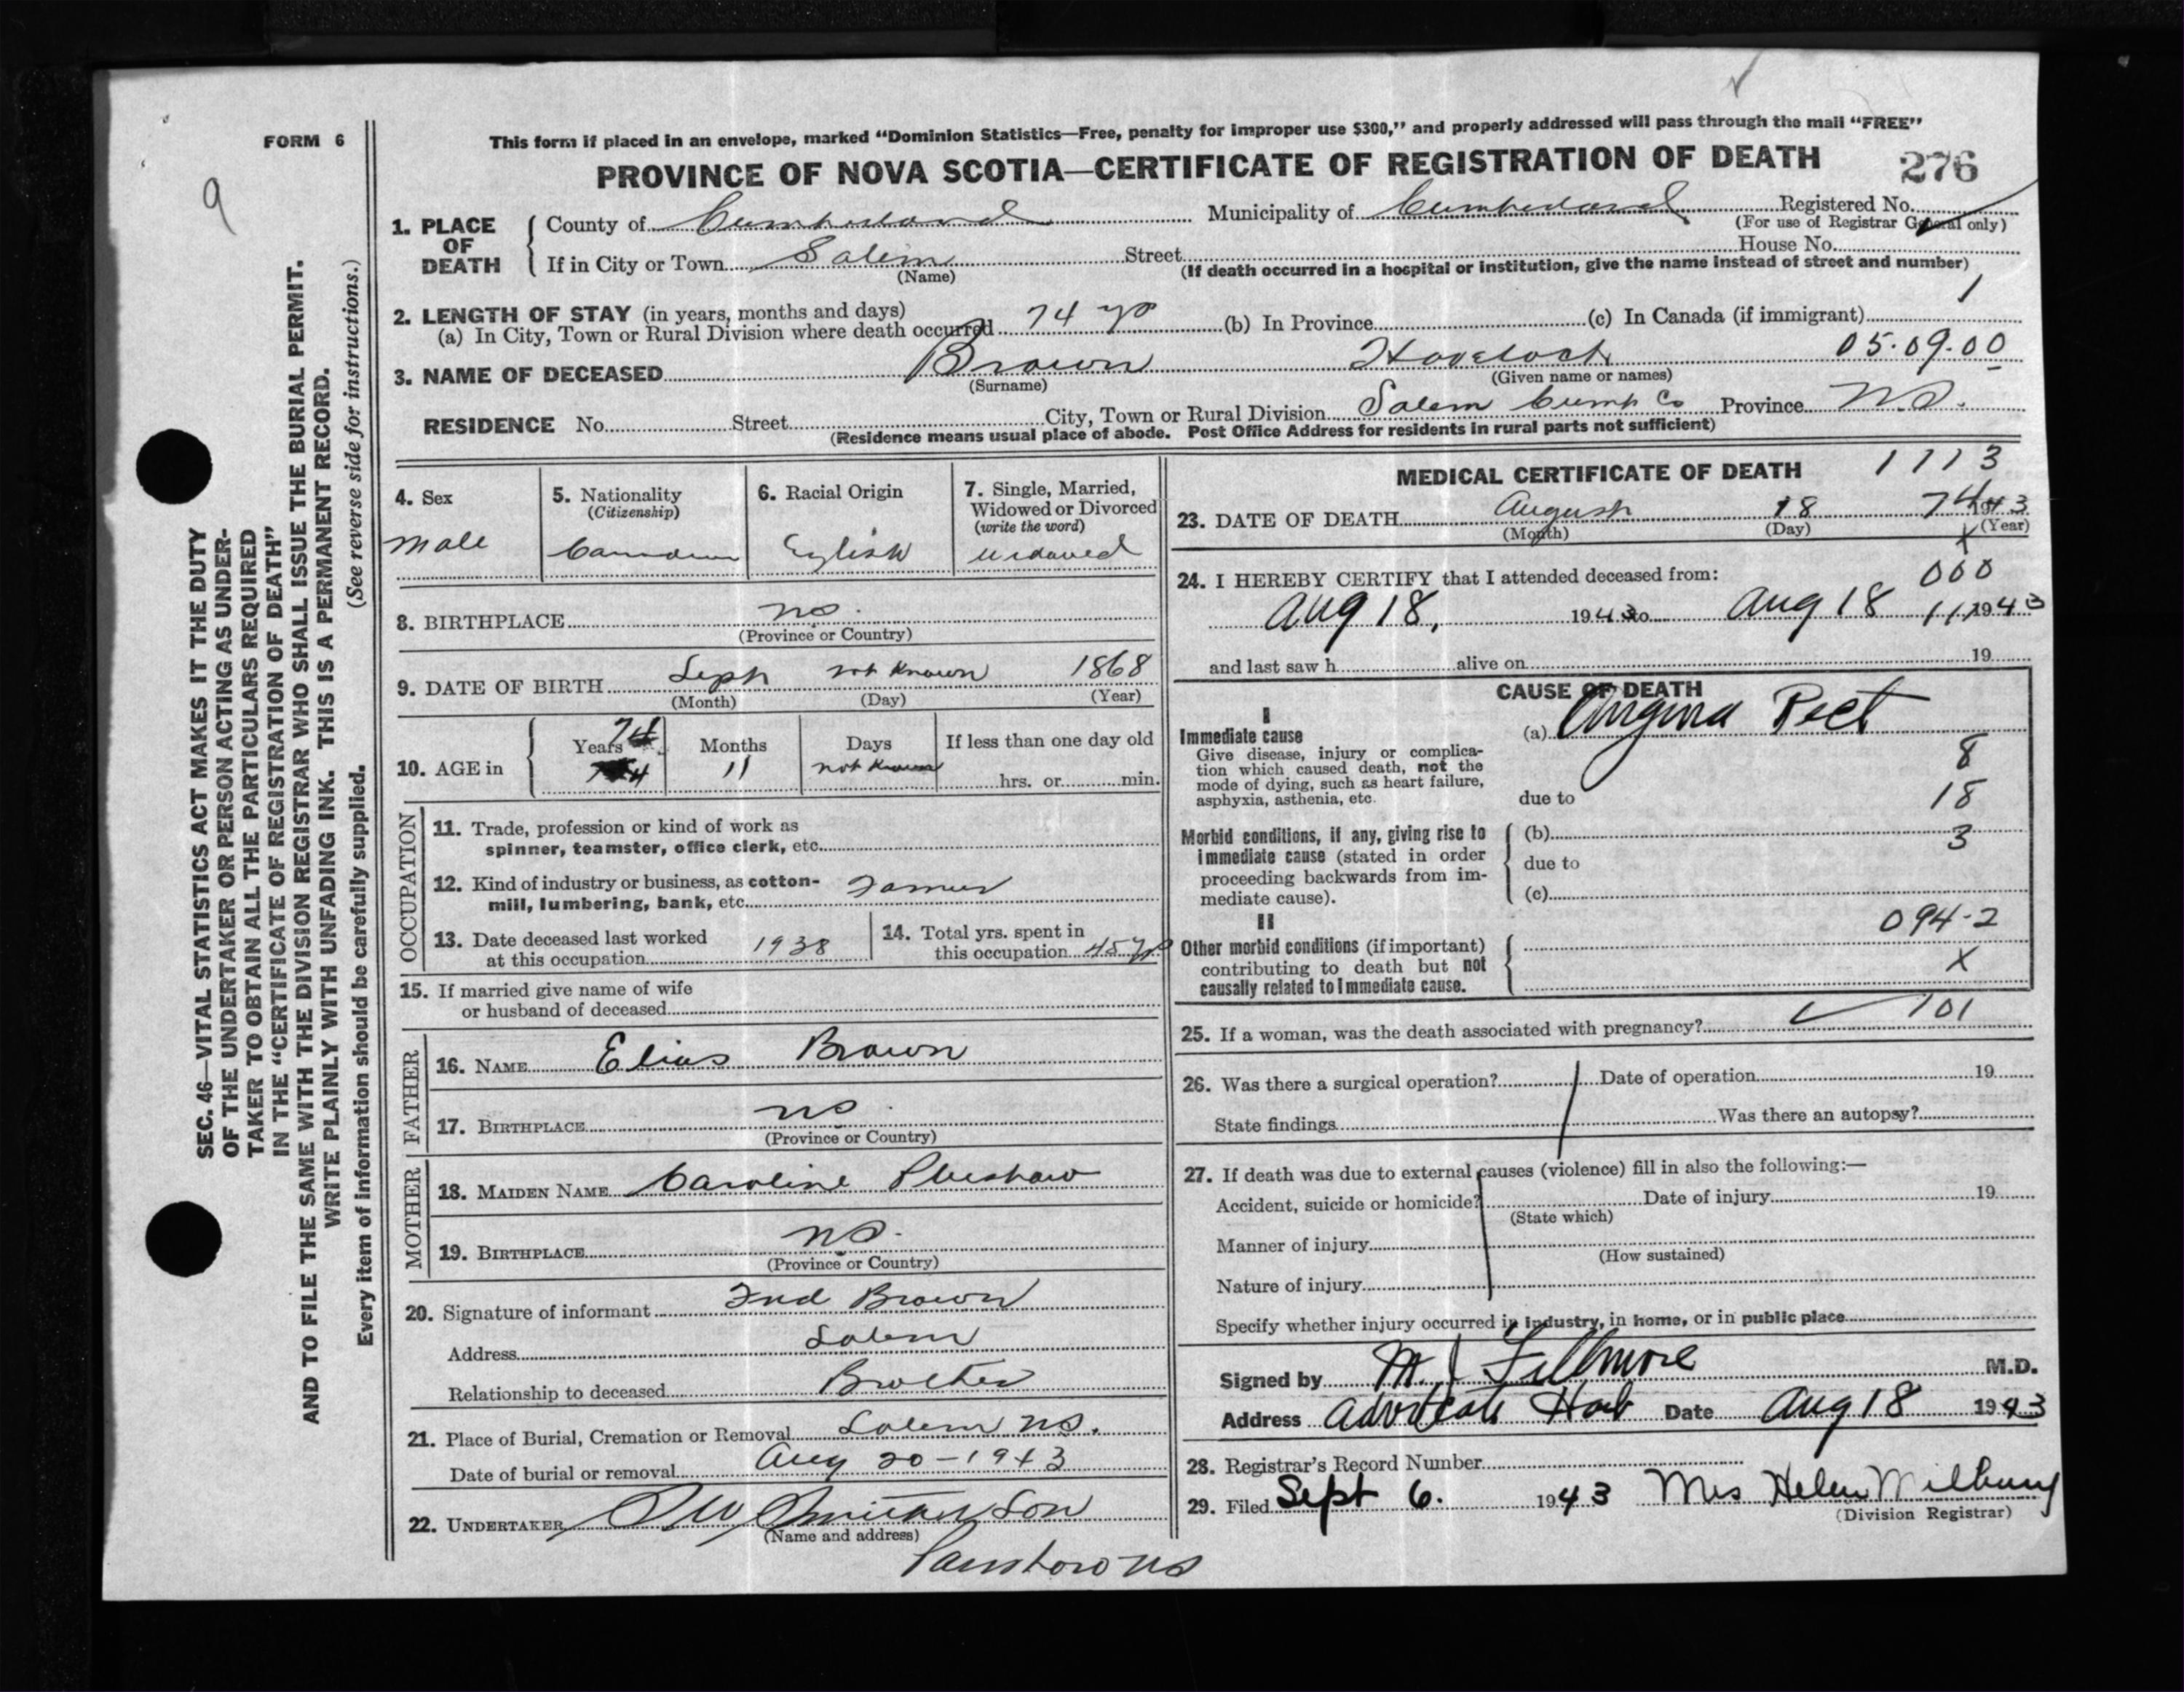 FORM 6
9
This form if placed in an envelope, marked "Dominion Statistics—Free, penalty for improper use $300," and properly addressed will pass through the mail "FREE"
PROVINCE OF NOVA SCOTIA—CERTIFICATE OF REGISTRATION OF DEATH 276
SEC. 46—VITAL STATISTICS ACT MAKES IT THE DUTY
OF THE UNDERTAKER OR PERSON ACTING AS UNDER-
TAKER TO OBTAIN ALL THE PARTICULARS REQUIRED
IN THE "CERTIFICATE OF REGISTRATION OF DEATH"
AND TO FILE THE SAME WITH THE DIVISION REGISTRAR WHO SHALL ISSUE THE BURIAL PERMIT.
WRITE PLAINLY WITH UNFADING INK. THIS IS A PERMANENT RECORD.
Every item of information should be carefully supplied. (See reverse side for instructions.)
1. PLACE OF DEATH
County of Cumberland Municipality of Cumberland Registered No.
(For use of Registrar General only)
If in City or Town Salem Street House No.
(Name) (If death occurred in a hospital or institution, give the name instead of street and number)
2. LENGTH OF STAY (in years, months and days) 1
(a) In City, Town or Rural Division where death occurred 74 yrs (b) In Province (c) In Canada (if immigrant)
3. NAME OF DECEASED Brown Havelock 05.09.00
(Surname) (Given name or names)
RESIDENCE No. Street City, Town or Rural Division Salem Cumb Co Province N.S.
(Residence means usual place of abode. Post Office Address for residents in rural parts not sufficient)
4. Sex
Male
5. Nationality
(Citizenship)
Canadian
6. Racial Origin
English
7. Single, Married,
Widowed or Divorced
(write the word)
widowed
8. BIRTHPLACE NS.
(Province or Country)
9. DATE OF BIRTH Sept not known 1868
(Month) (Day) (Year)
10. AGE in
Years 74
Months 11
Days not known
If less than one day old
hrs. or min.
OCCUPATION
11. Trade, profession or kind of work as
spinner, teamster, office clerk, etc.
12. Kind of industry or business, as cotton-
mill, lumbering, bank, etc. Farmer
13. Date deceased last worked
at this occupation 1938
14. Total yrs. spent in
this occupation 45 yrs
15. If married give name of wife
or husband of deceased
FATHER
16. NAME Elias Brown
17. BIRTHPLACE NS.
(Province or Country)
MOTHER
18. MAIDEN NAME Caroline
19. BIRTHPLACE NS.
(Province or Country)
20. Signature of informant Fred Brown
Address Salem
Relationship to deceased Brother
21. Place of Burial, Cremation or Removal Salem NS.
Date of burial or removal Aug 20-1943
22. UNDERTAKER Son
(Name and address)
Parrsboro NS
MEDICAL CERTIFICATE OF DEATH 1113
23. DATE OF DEATH August 18 74 1943
(Month) (Day) (Year)
X
24. I HEREBY CERTIFY that I attended deceased from: 000
Aug 18, 1943 to Aug 18 11 1943
and last saw h alive on 19
CAUSE OF DEATH
I
Immediate cause
Give disease, injury or complica-
tion which caused death, not the
mode of dying, such as heart failure,
asphyxia, asthenia, etc.
(a) Angina Pect
8
due to 18
Morbid conditions, if any, giving rise to
immediate cause (stated in order
proceeding backwards from im-
mediate cause).
(b) 3
due to
(c)
II
Other morbid conditions (if important)
contributing to death but not
causally related to immediate cause.
094-2
X
101
25. If a woman, was the death associated with pregnancy?
26. Was there a surgical operation? Date of operation 19
State findings Was there an autopsy?
27. If death was due to external causes (violence) fill in also the following:—
Accident, suicide or homicide? Date of injury 19
(State which)
Manner of injury
(How sustained)
Nature of injury
Specify whether injury occurred in industry, in home, or in public place
Signed by M. J Fillmore M.D.
Address Advocate Harb Date Aug 18 1943
28. Registrar's Record Number
29. Filed Sept 6. 1943 Mrs Helen Milbury
(Division Registrar)